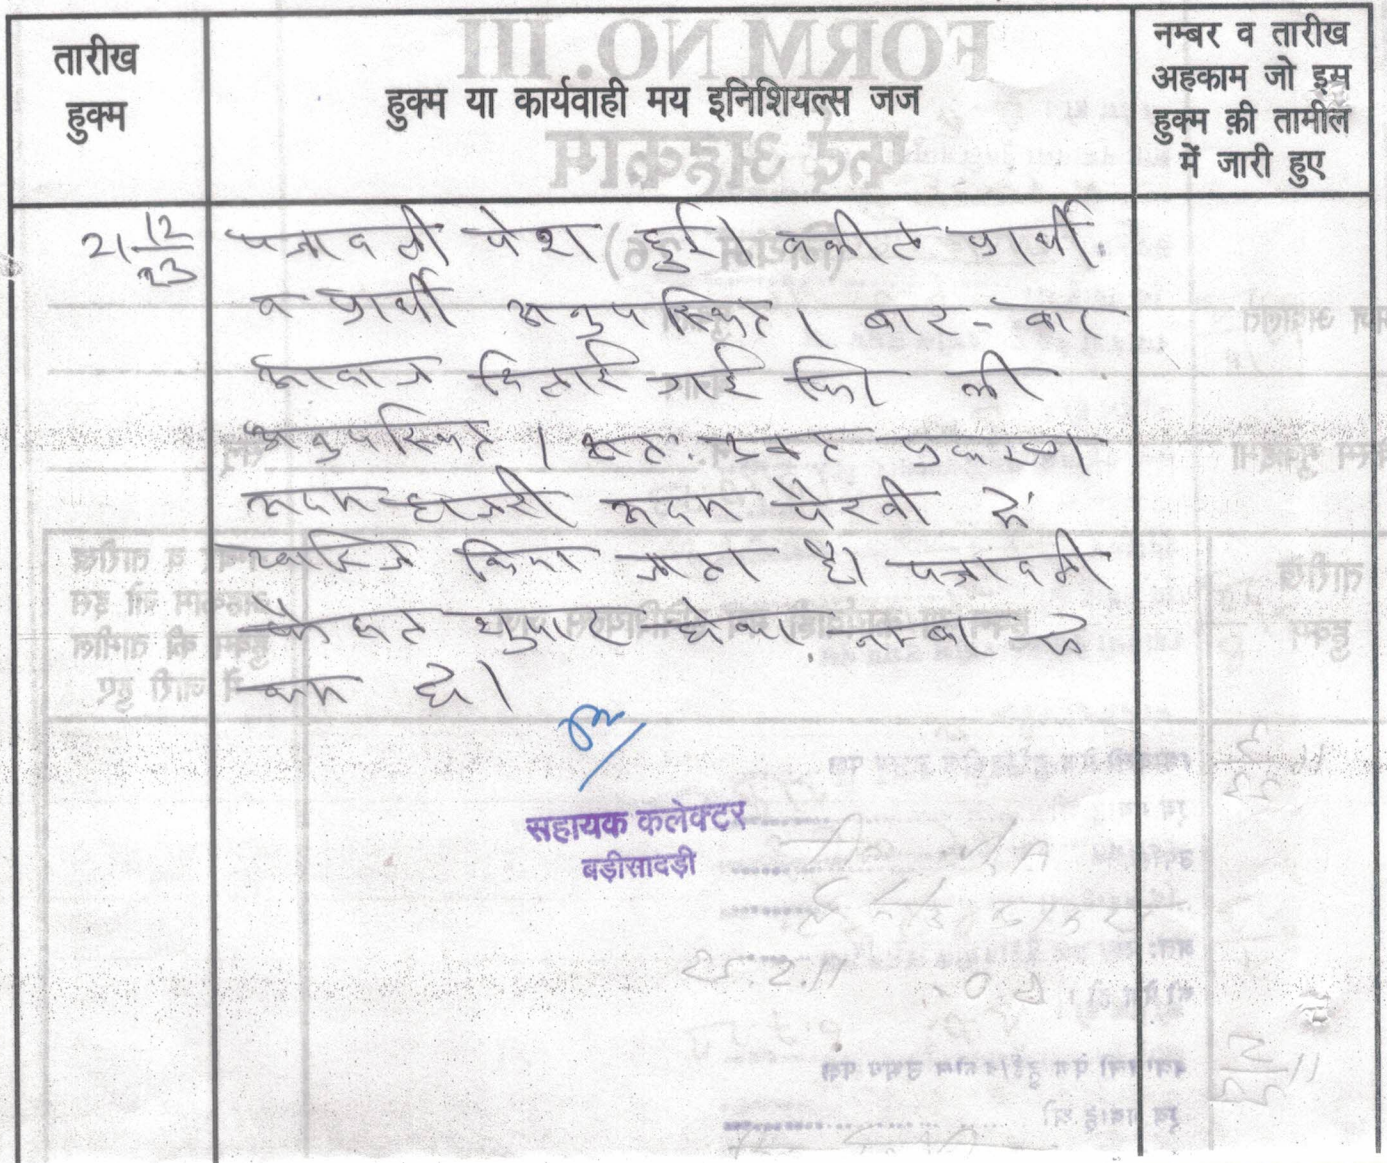 तारीख
हुक्म
हुक्म या कार्यवाही मय इनिशियल्स जज
नम्बर व तारीख
अहकाम जो इस
हुक्म की तामील
में जारी हुए
21/12/23
पत्रावली पेश हुई। वकील प्रार्थी
व प्रार्थी अनुपस्थित। बार-बार
आवाज दिलाई गई फिर भी
अनुपस्थित। अतः प्रकरण
अदम हाजरी अदम पैरवी में
खारिज किया जाता है। पत्रावली
फैसल शुमार होकर नम्बर से
कम हो।
सहायक कलेक्टर
बड़ीसादड़ी